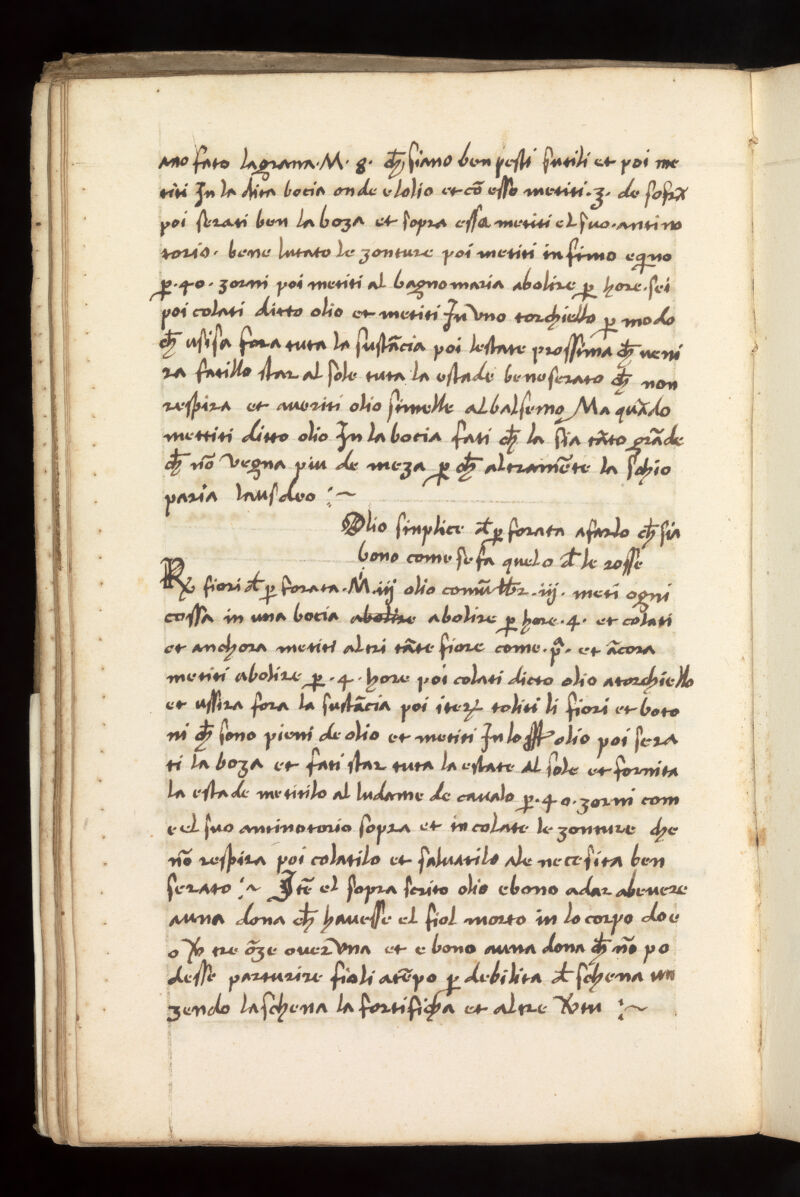 ano fato la grana · M · 8 · ch̄ siano ben pesti sutili et poi me
titi In la dita bocia onde e lolio et cō esso metiti · 3 · de sopra
poi serati ben la boza et sopra essa metiti el suo · antino
torio · bene lutato le zonture poi metiti in fimo equino
ꝑ · 40 · zorni poi metiti al bagno maria abolire ꝑ hore · sei
poi colati ditto olio et metiti In uno torchiello ꝑ modo
ch̄ usisa fora tuta la sustācia poi lestate prossima ch̄ veni
ra fatillo star al sole tuta la estade bene serato ch̄ non
respira et averiti olio simelle al balsemo Ma quādo
mettiti ditto olio In la bocia fati ch̄ la sia tāto grāde
ch̄ nō vegna piu de meza ꝑ ch̄ altramēte la schio
paria laus deo :~
Olio simplice d̄ ꝑforata a farlo ch̄ sia
bono come se fa quelo d̄ le rosse
℞ fiori d̄ ꝑforata · M · iij olio comū lbr · iij · meti ogni
cossa in una bocia abolire abolire ꝑ hore · 4 · et colati
et anchora metiti altri tāte fiore come · pᵃ · et ācora
metiti abolire ꝑ · 4 · hore poi colati dicto olio a torchiello
et ussira fora la sustācia poi iteꝝ toliti li fiori et boto
ni ch̄ sono pieni de olio et metiti In lo olio poi sera
ti la boza et fati star tuta la estate al sole et fornita
la estade metitilo al ludame de cavalo ꝑ · 40 · zorni com
e el suo antinotorio sopra et in colate le zonture che
nō respira poi colatilo et salvatilo ale necesita ben
serato :~ Itē el sopra scrito olio e bono a dar a bevere
a una dona ch̄ havesse el fiol morto in lo corpo doe
o v̄o tre ōze over una et e bono a una dona ch̄ nō po
desse parturire fioli a tēpo ꝑ debilita d̄ schena un
zendo la schena la fortificha et altre v̄tu :~